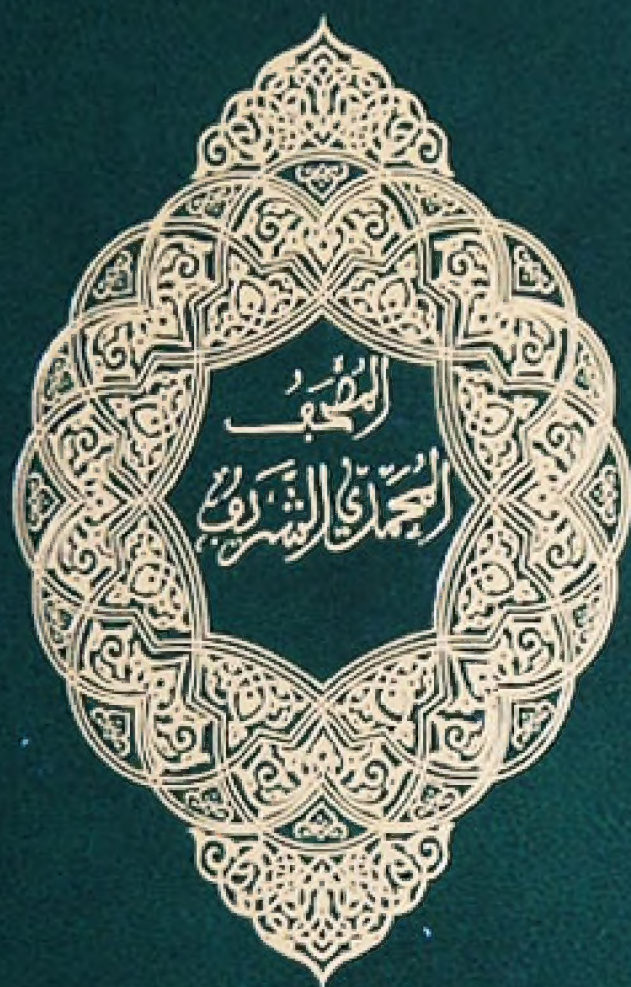 المُصْحَفُ
المُحَمَّدِيّ الشَّرِيفُ